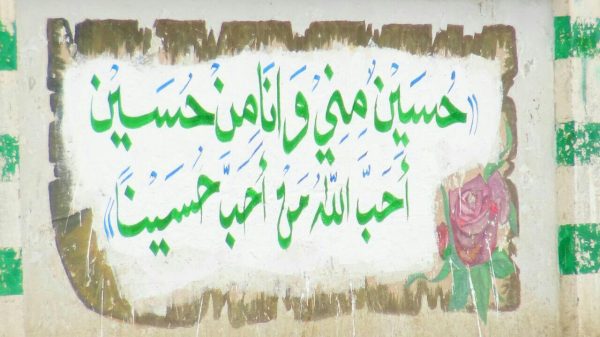 «حُسَيْنٌ مِنِّيْ وَاَنَا مِنْ حُسَيْن
أَحَبَّ اللّٰهُ مَنْ أَحَبَّ حُسَيْناً»